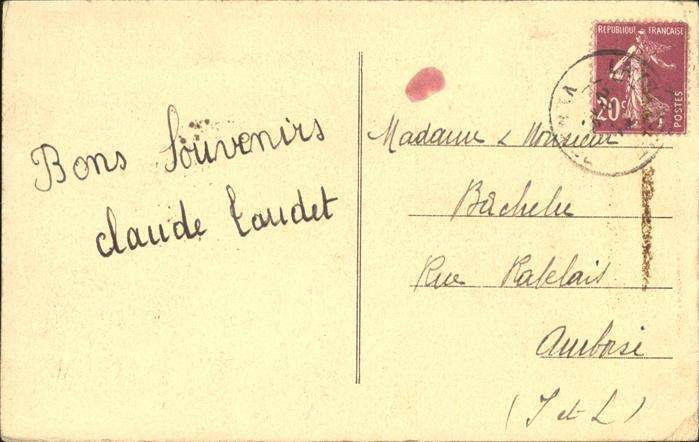 Bons Souvenirs
Claude Taudet
REPUBLIQUE FRANÇAISE
20c
POSTES
Madame & Monsieur
Bachelu
Rue Rabelais
Amboise
(I et L)